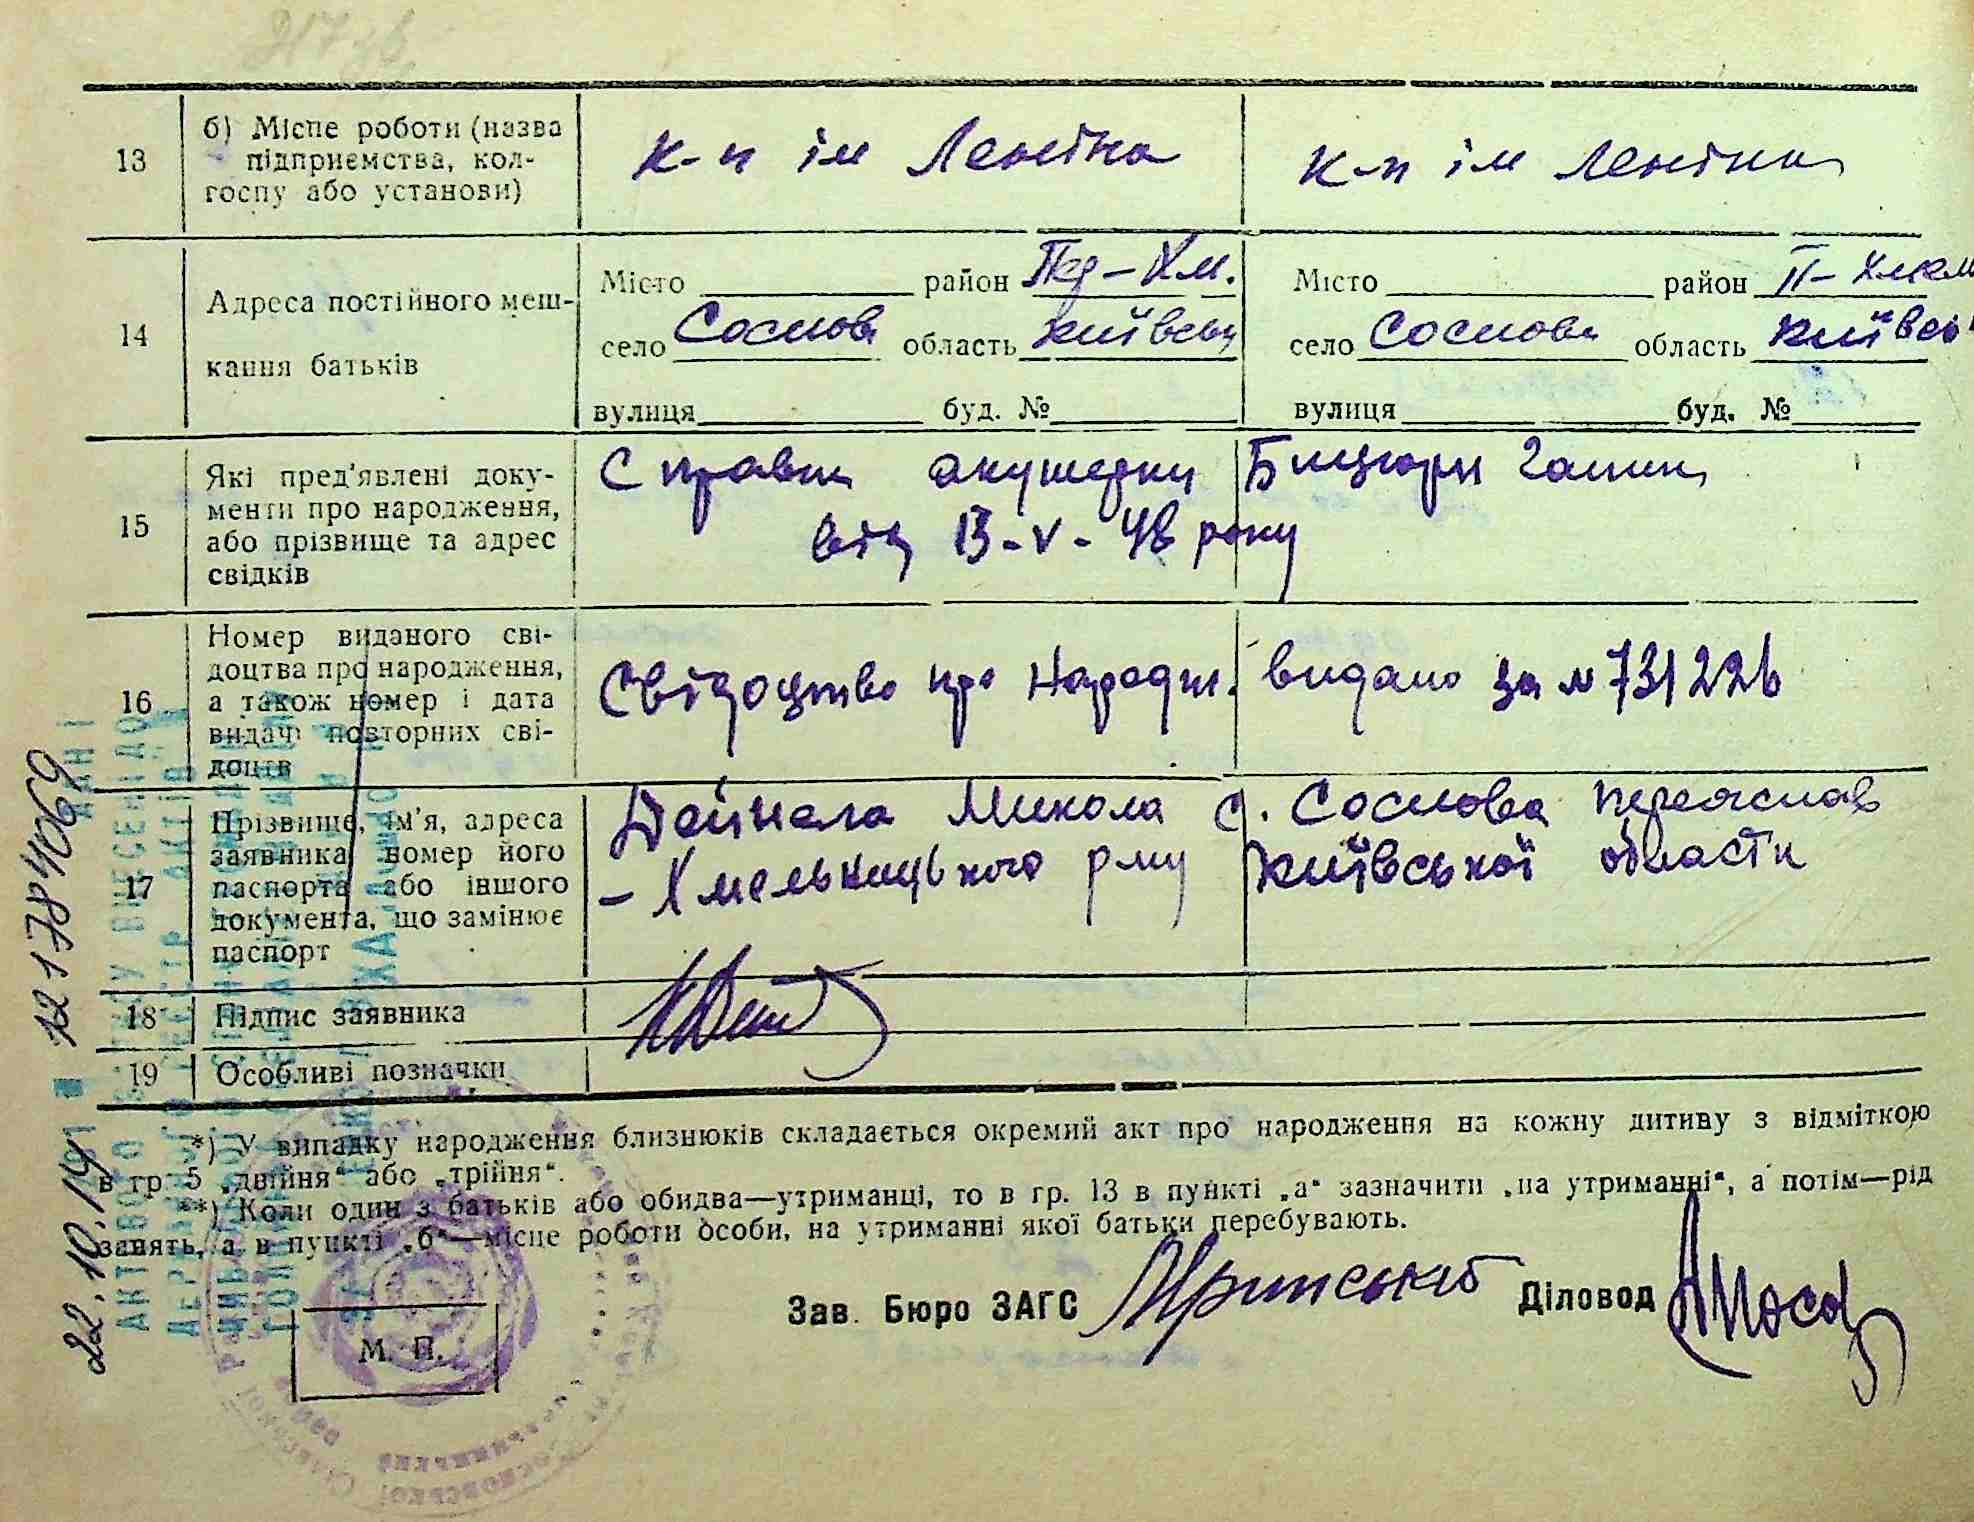 13
б) Місце роботи (назва
підприємства, кол-
госпу або установи)
к-п ім Леніна
к-п ім Леніна
14
Адреса постійного меш-
кання батьків
Місто район Пер-Хм.
село Соснова область Київськ
вулиця буд. №
Місто район П-Хмель
село Соснова область Київсь
вулиця буд. №
15
Які пред'явлені доку-
менти про народження,
або прізвище та адрес
свідків
Справка акушерки Бицюри Галини
від 13-V-48 року
16
Номер виданого сві-
доцтва про народження,
а також номер і дата
видачі повторних сві-
доцтв
Свідоцтво про народж. видано за №731226
17
Прізвище, ім'я, адреса
заявника, номер його
паспорта або іншого
документа, що замінює
паспорт
Дейнега Микола с. Соснова Переяслав
-Хмельницького р-ну Київської області
18
Підпис заявника
19
Особливі позначки
*) У випадку народження близнюків складається окремий акт про народження на кожну дитину з відміткою
в гр. 5 „двійня“ або „трійня“.
**) Коли один з батьків або обидва—утриманці, то в гр. 13 в пункті „а“ зазначити „на утриманні“, а потім—рід
занять, а в пункті „б“—місце роботи особи, на утриманні якої батьки перебувають.
Зав. Бюро ЗАГС Діловод
М. П.
22.10.14 121784069